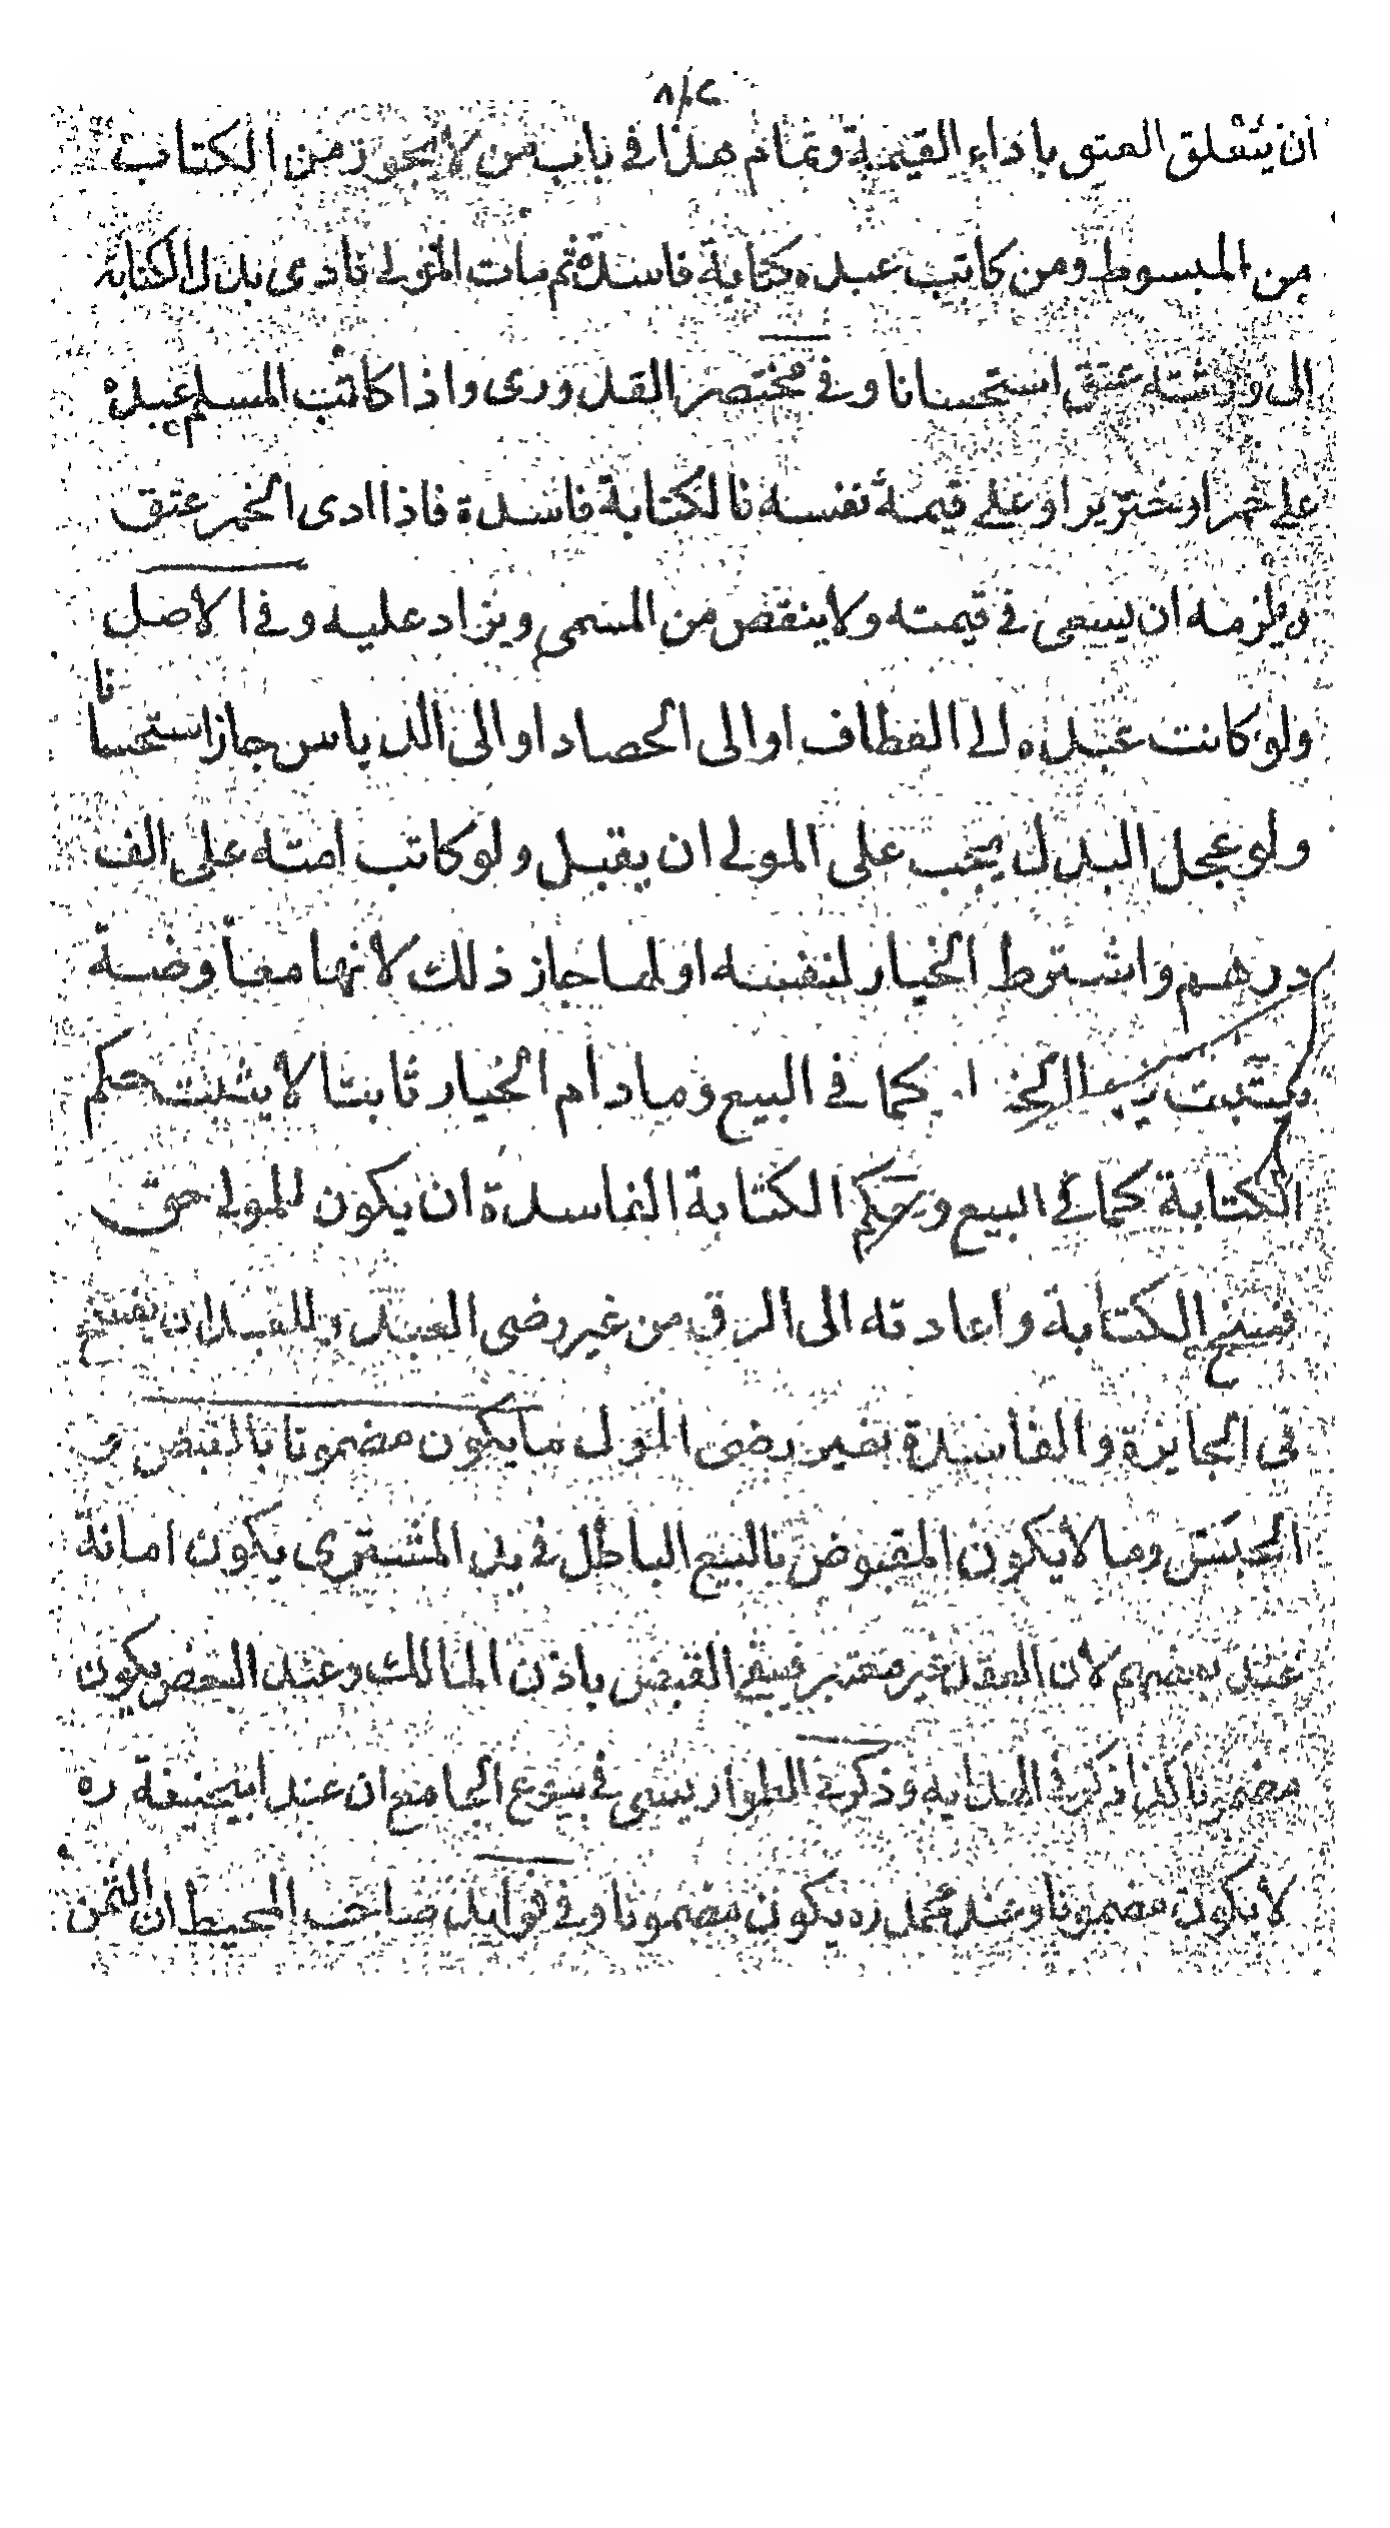 ٨٢
ان يتعلق العتق باداء القيمة وتمام هذا في باب من لا يجوز من الكتابة
من المبسوط ومن كاتب عبده كتابة فاسدة ثم مات المولى فادى بدل الكتابة
الى ورثته عتق استحسانا وفي مختصر القدوري واذا كاتب المسلم عبده
على خمر او خنزير او على قيمة نفسه فالكتابة فاسدة فاذا ادى الخمر عتق
ويلزمه ان يسعى في قيمته ولا ينقص من المسمى ويزاد عليه وفي الاصل
ولو كاتب عبده الى القطاف او الى الحصاد او الى الدياس جاز استحسانا
ولو عجل البدل يجب على المولى ان يقبل ولو كاتب امته على الف
درهم واشترط الخيار لنفسه او لها جاز ذلك لانها معاوضة
كما في البيع وما دام الخيار ثابتا لا يثبت حكم
الكتابة كما في البيع وحكم الكتابة الفاسدة ان يكون للمولى حق
فسخ الكتابة واعادته الى الرق من غير رضى العبد وللعبد ان يفسخ
في الجايزة والفاسدة بغير رضى المولى ما يكون مضمونا بالقبض
وما لا يكون المقبوض بالبيع الباطل في يد المشتري يكون امانة
عند بعضهم لان العقد غير معتبر فبقي القبض باذن المالك وعند البعض يكون
مضمونا كذا ذكر في الهداية وذكر في الطواريسي في بيوع الجامع ان عند ابيحنيفة ره
لا يكون مضمونا وعند محمد ره يكون مضمونا وفي فوايد صاحب المحيط ان الثمن